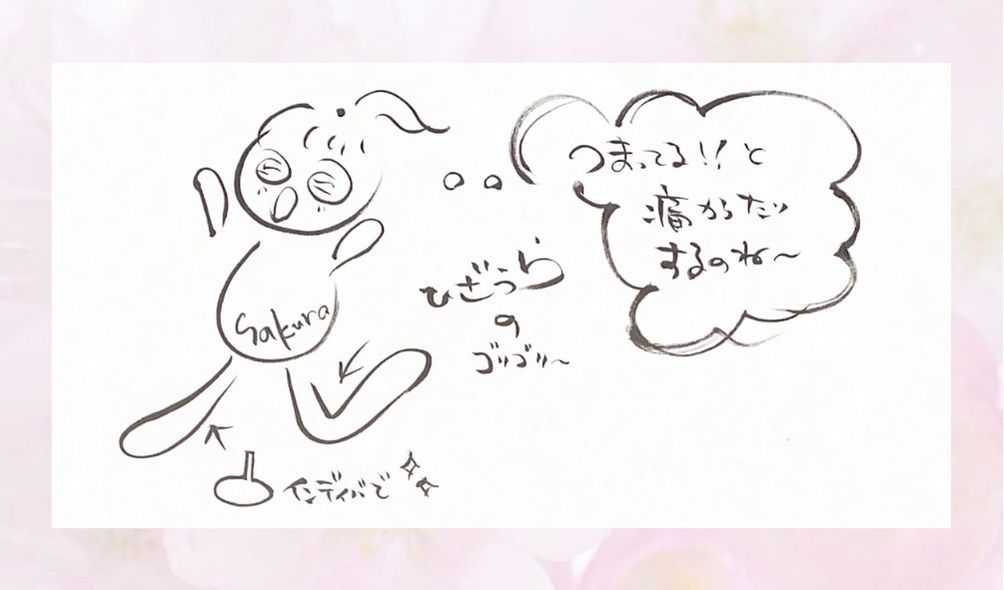 つまってる!! と
痛かったり
するのね～
ひざうら
の
ゴリゴリ～
Sakura
インディバで